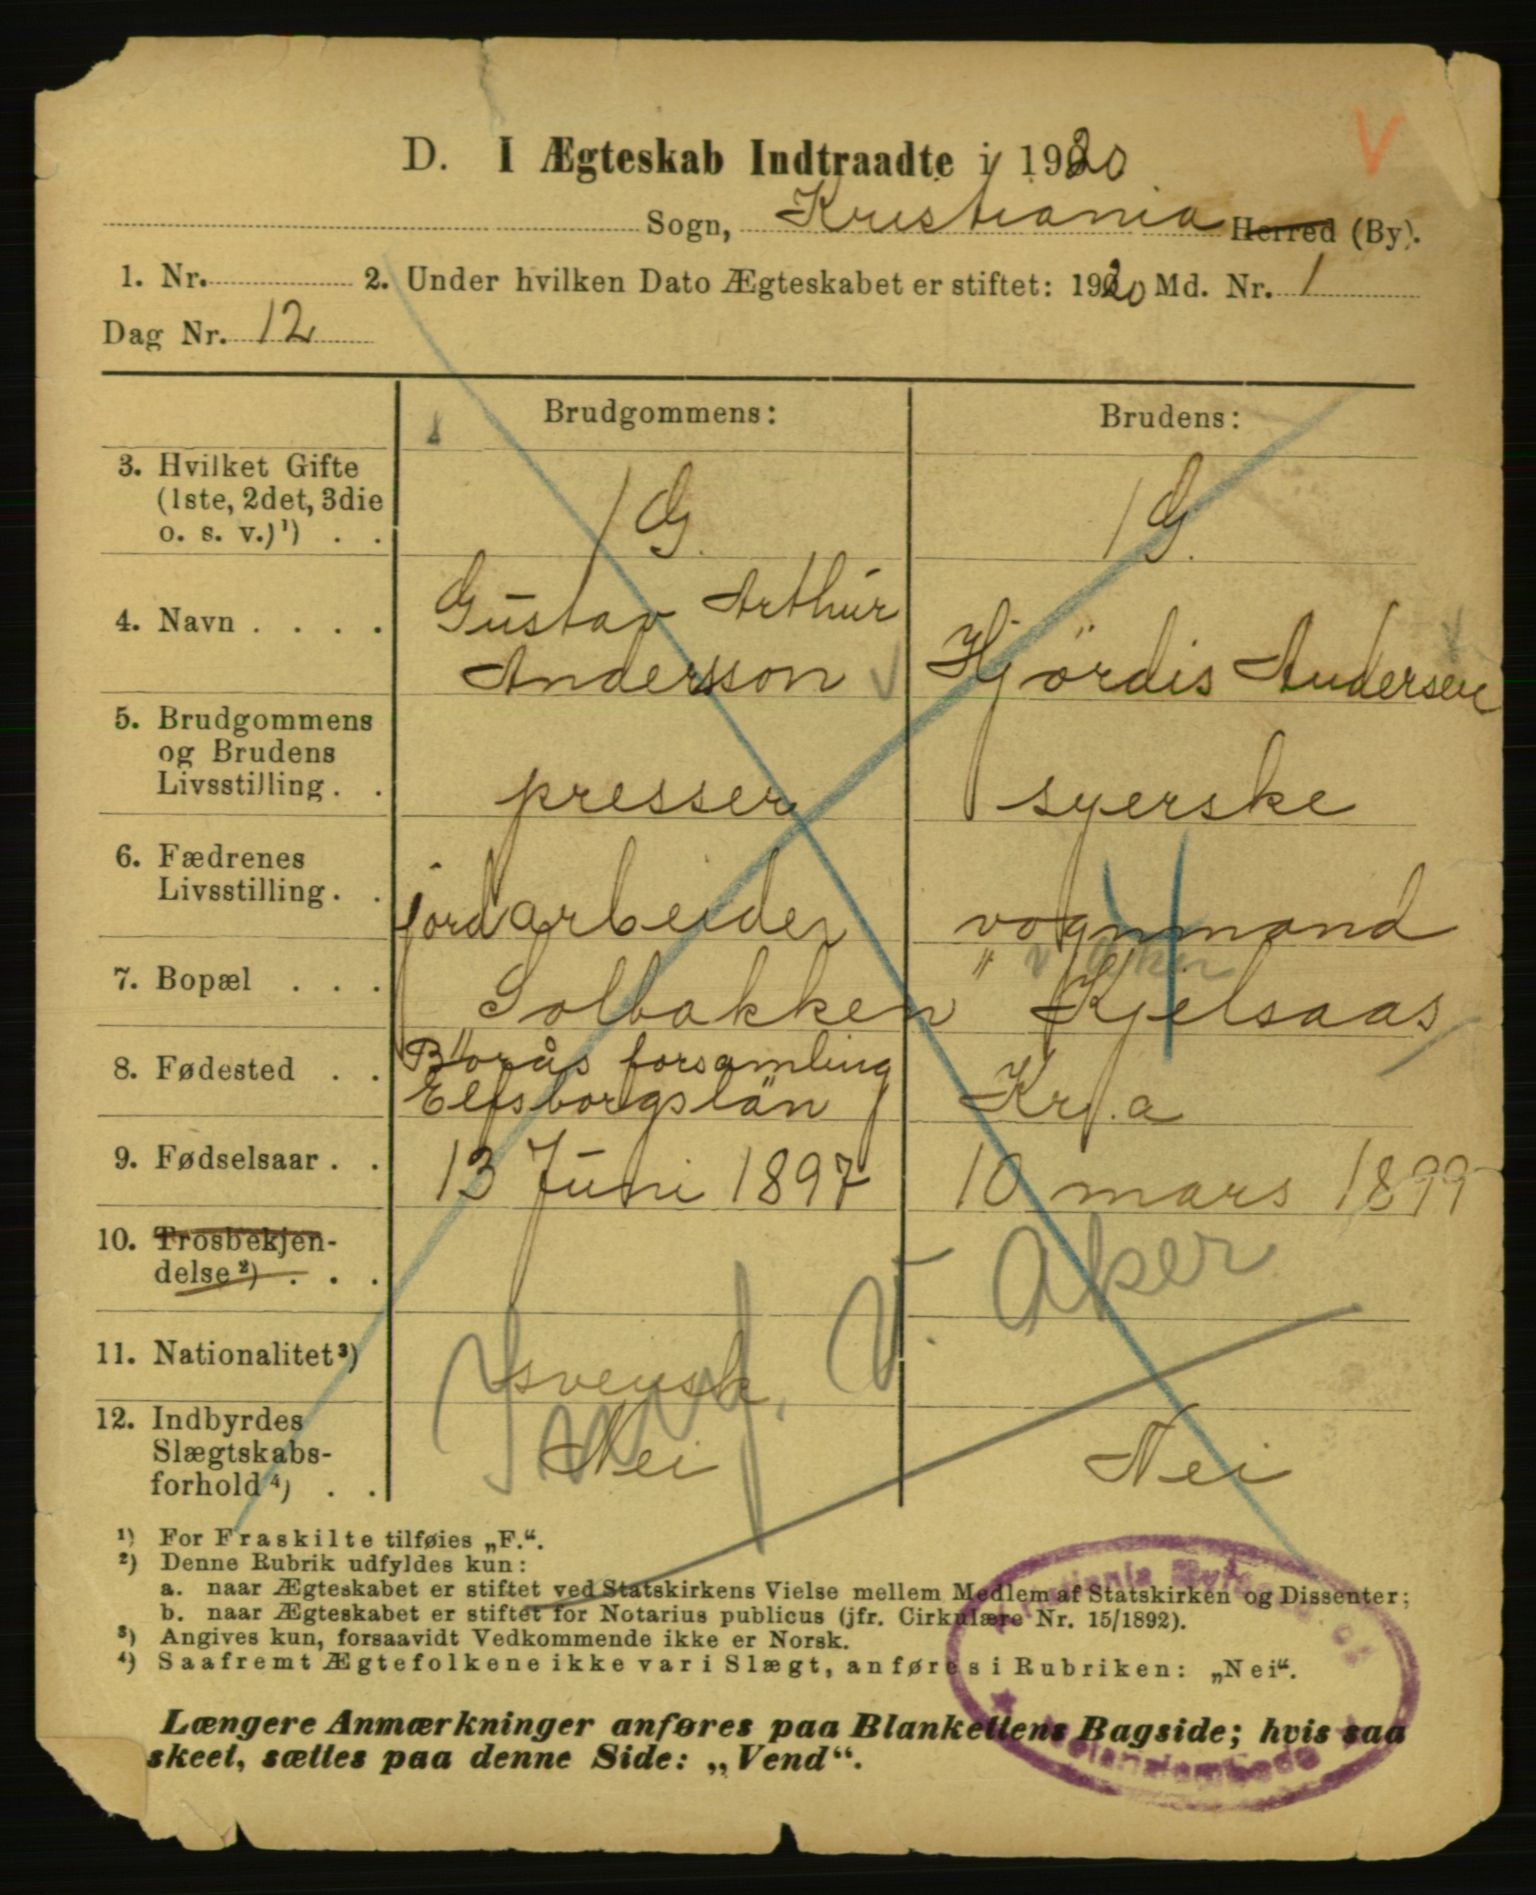 D. I Ægteskab Indtraadte i 1920
Sogn, Kristiania Herred (By).
1. Nr. 2. Under hvilken Dato Ægteskabet er stiftet: 1920 Md. Nr. 1
Dag Nr. 12
Brudgommens: Brudens:
3. Hvilket Gifte
(1ste, 2det, 3die
o. s. v.)¹) . . 1 G. 1 G.
4. Navn . . . . Gustav Arthur
Andersson Hjördis Andersen
5. Brudgommens
og Brudens
Livsstilling . . presser syerske
6. Fædrenes
Livsstilling . . jordarbeider vognmand
7. Bopæl . . . Solbakken " Kjelsaas
8. Fødested . . Borås forsamling
Elfsborgslän Kr.a
9. Fødselsaar . . 13 Juni 1897 10 mars 1899
10. Trosbekjen-
delse²) . . .
V. Aker
11. Nationalitet³) svensk.
12. Indbyrdes
Slægtskabs-
forhold⁴) . . Nei Nei
¹) For Fraskilte tilføies „F.“.
²) Denne Rubrik udfyldes kun:
a. naar Ægteskabet er stiftet ved Statskirkens Vielse mellem Medlem af Statskirken og Dissenter;
b. naar Ægteskabet er stiftet for Notarius publicus (jfr. Cirkulære Nr. 15/1892).
³) Angives kun, forsaavidt Vedkommende ikke er Norsk.
⁴) Saafremt Ægtefolkene ikke var i Slægt, anføres i Rubriken: „Nei“.
Længere Anmærkninger anføres paa Blankettens Bagside; hvis saa
skeet, sættes paa denne Side: „Vend“.